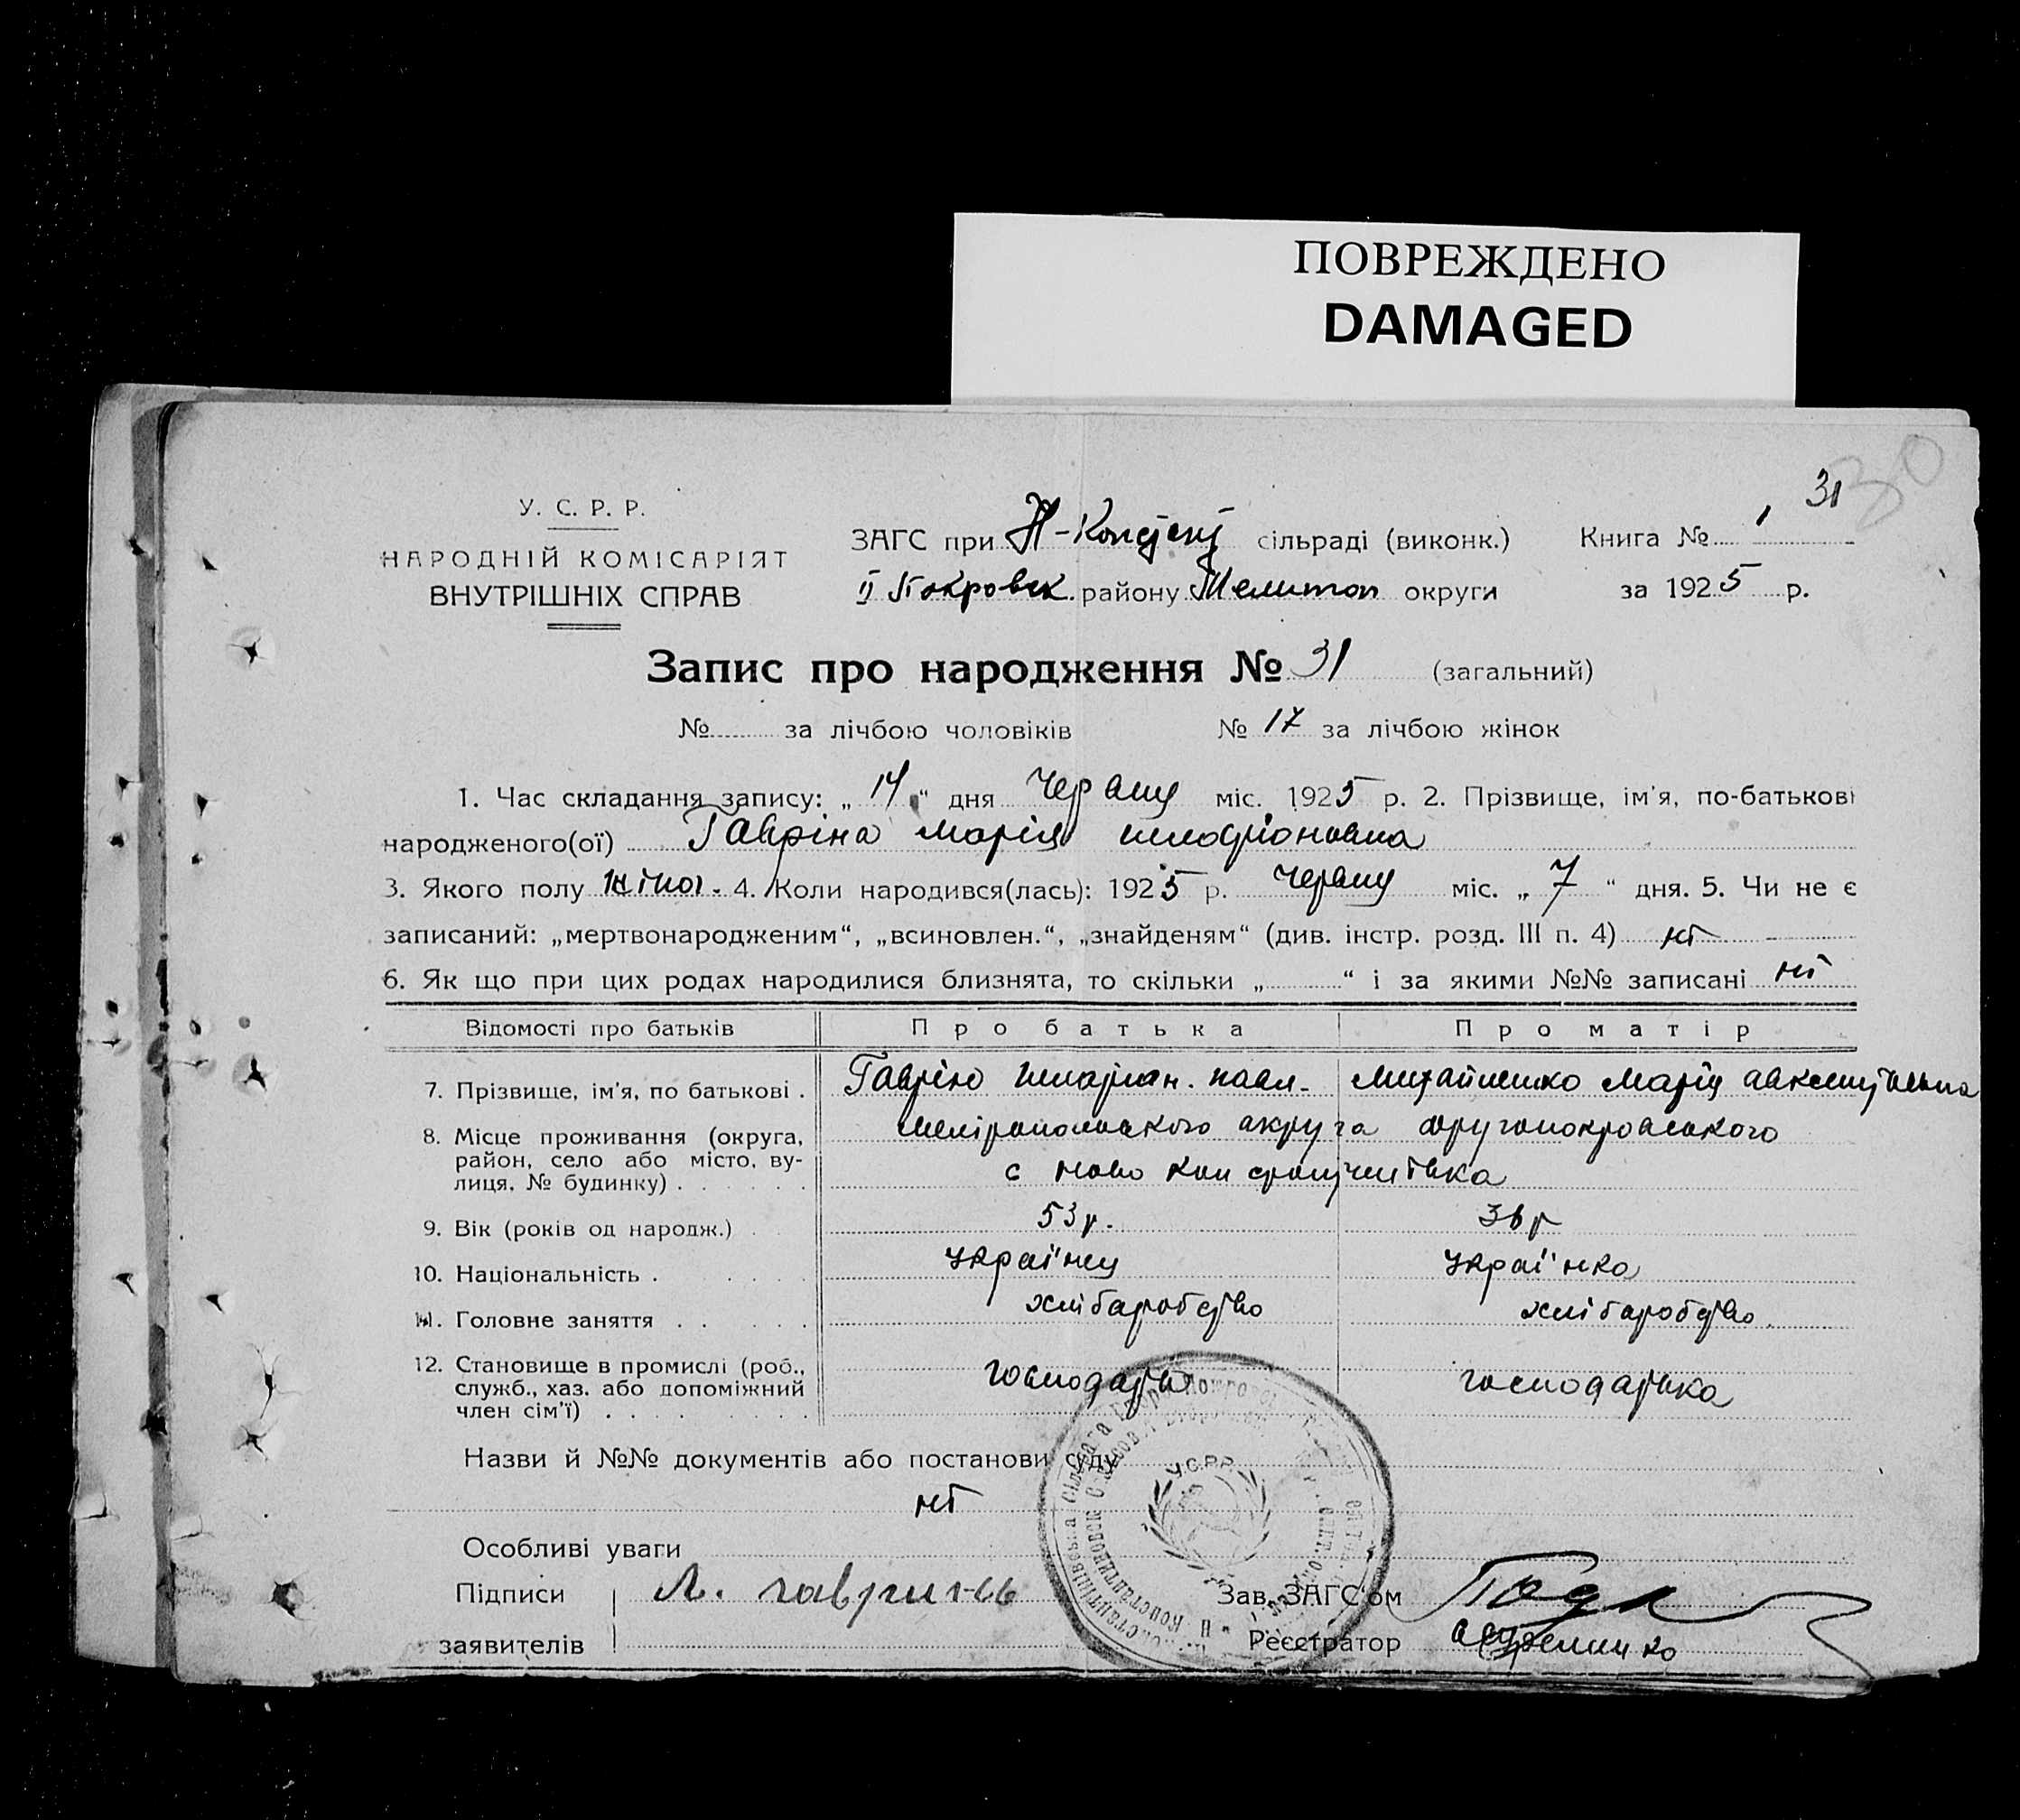 ПОВРЕЖДЕНО
DAMAGED
30
31
У. С. Р. Р.
НАРОДНІЙ КОМІСАРІЯТ
ВНУТРІШНІХ СПРАВ
ЗАГС при сільраді (виконк.) Книга № 1
ІІ Покровск. району Мелитоп округи за 1925 р.
Запис про народження № 31 (загальний)
№ за лічбою чоловіків № 17 за лічбою жінок
1. Час складання запису: „ 14 “ дня міс. 1925 р. 2. Прізвище, ім'я, по-батькові
народженого(ої) Гавріна Марія
3. Якого полу жіноч. 4. Коли народився(лась): 1925 р. міс. „ 7 “ дня. 5. Чи не є
записаний: „мертвонародженим“, „всиновлен.“, „знайденям“ (див. інстр. розд. III п. 4) ні
6. Як що при цих родах народилися близнята, то скільки „ “ і за якими №№ записані ні
Відомості про батьків Про батька Про матір
7. Прізвище, ім'я, по батькові . Марія
8. Місце проживання (округа, округа
район, село або місто, ву-
лиця, № будинку) . с Ново
9. Вік (років од народж.) 53 р. 36 р
10. Національність . українец українка
11. Головне заняття . . хліборобство хліборобство
12. Становище в промислі (роб., господарь господарька
служб., хаз. або допоміжний
член сім'ї) .
Назви й №№ документів або постанови суду
ні
Особливі уваги
У.С.Р.Р.
Підписи Зав. ЗАГС'ом
заявителів Реєстратор